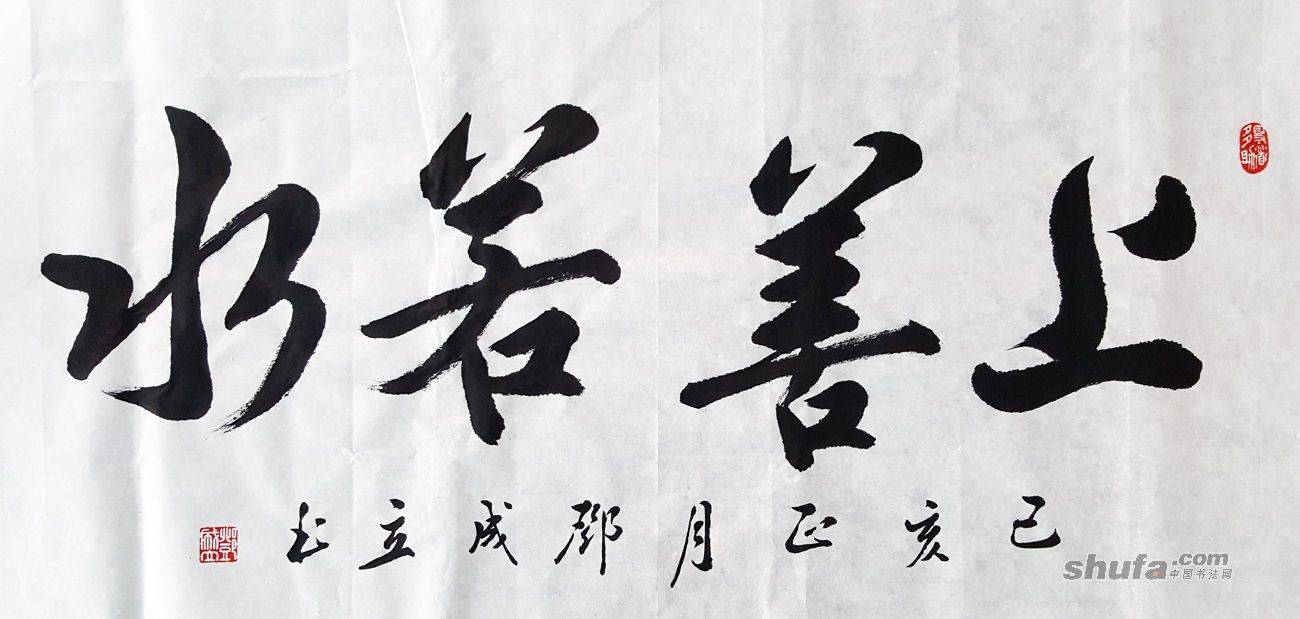 上善若水
己亥正月鄧成立书
得道多助
shufa.com
中国书法网